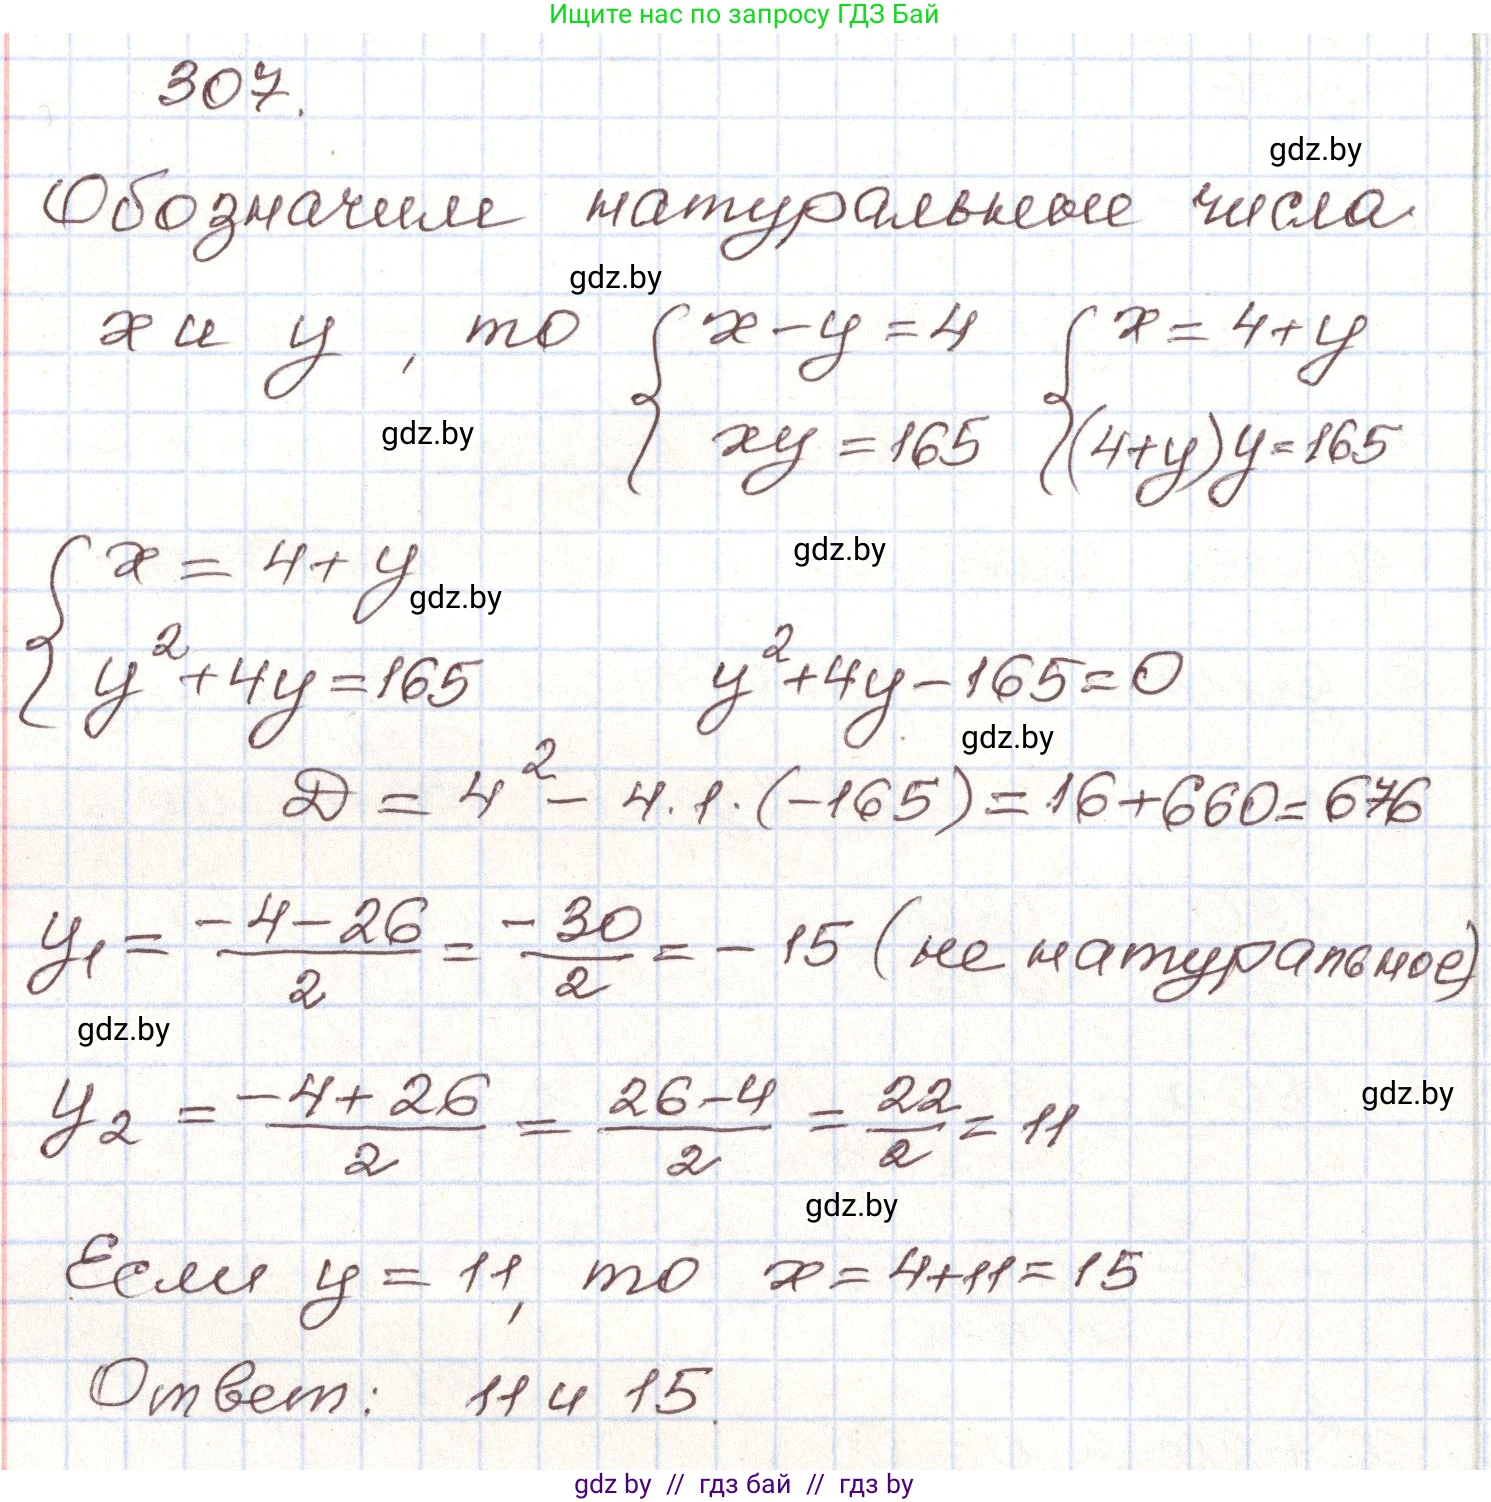 Ищите нас по запросу ГДЗ Бай
307.
gdz.by
Обозначим натуральные числа
gdz.by
x и y, то { x - y = 4 { x = 4 + y
gdz.by
xy = 165 (4+y)y = 165
gdz.by
{ x = 4 + y
gdz.by
y² + 4y = 165 y² + 4y - 165 = 0
gdz.by
D = 4² - 4·1·(-165) = 16 + 660 = 676
y₁ = (-4-26)/2 = -30/2 = -15 (не натуральное)
gdz.by
gdz.by
y₂ = (-4+26)/2 = (26-4)/2 = 22/2 = 11
gdz.by
Если y = 11, то x = 4+11 = 15
Ответ: 11 и 15.
gdz by // гдз бай // гдз by